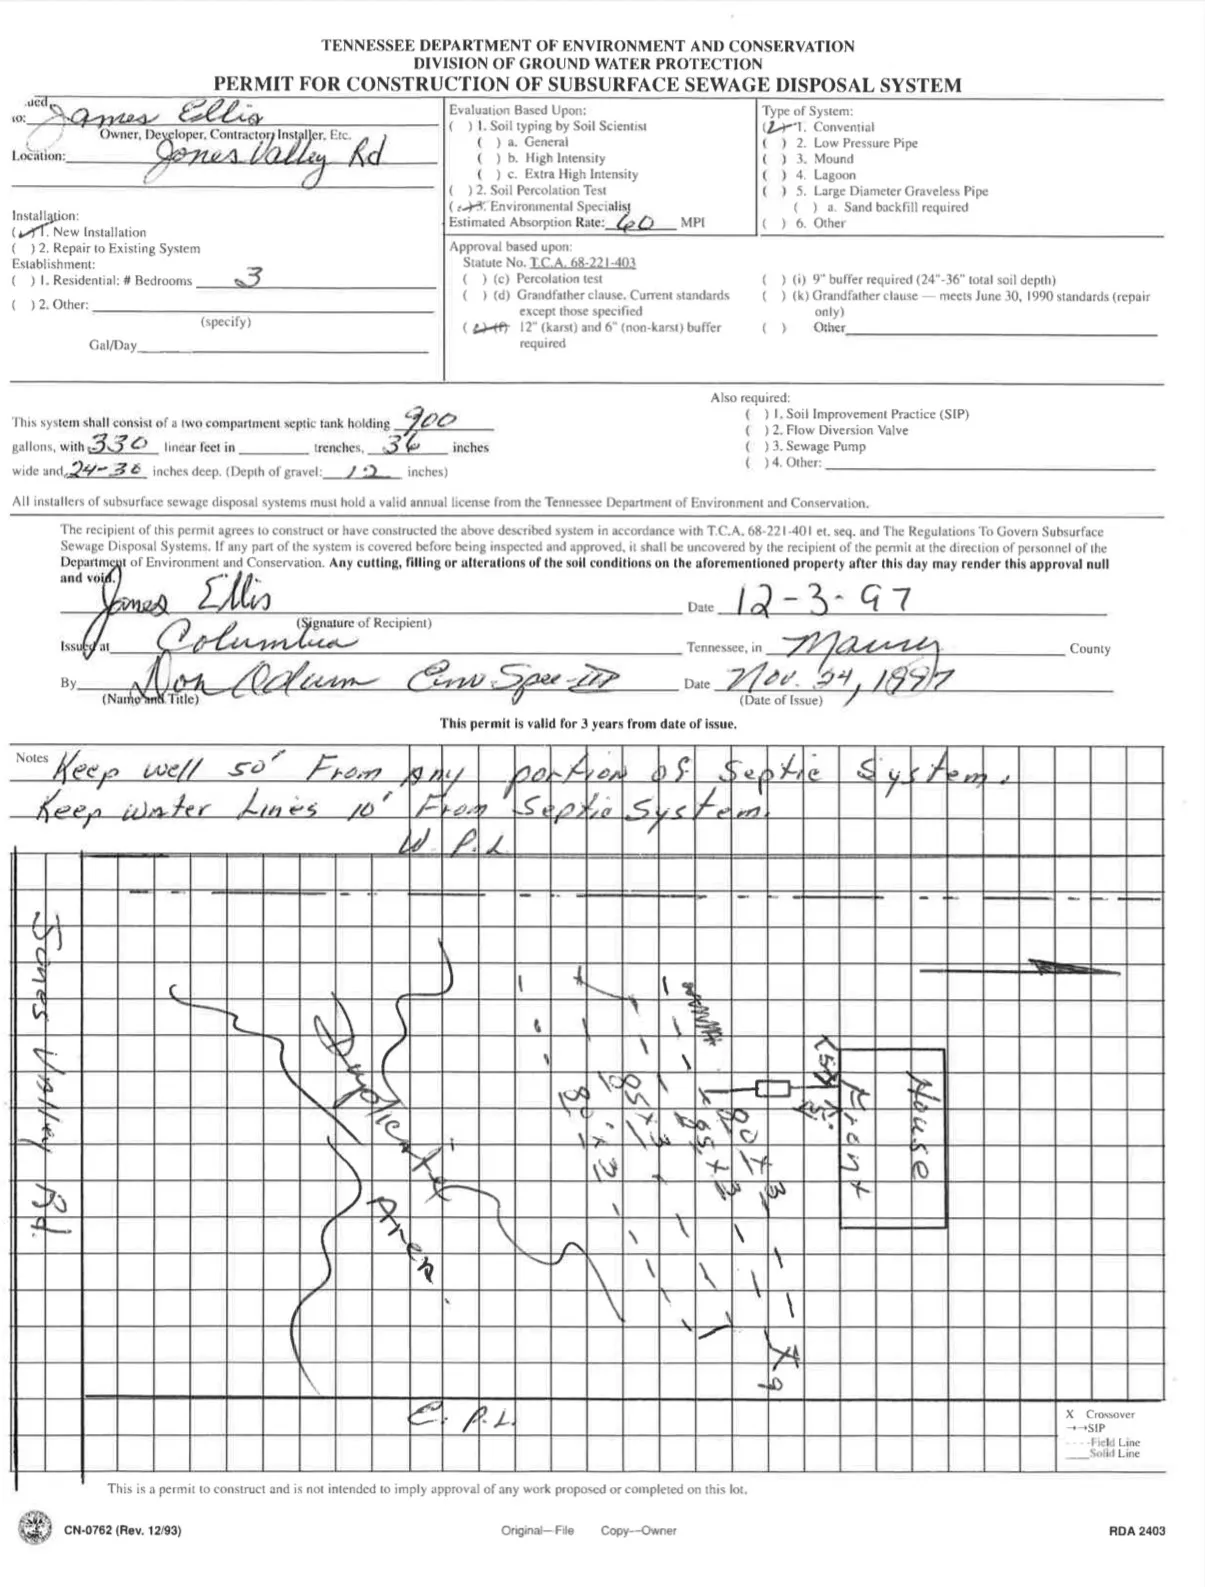 TENNESSEE DEPARTMENT OF ENVIRONMENT AND CONSERVATION
DIVISION OF GROUND WATER PROTECTION
PERMIT FOR CONSTRUCTION OF SUBSURFACE SEWAGE DISPOSAL SYSTEM
ued
to: James Ellis
Owner, Developer, Contractor, Installer, Etc.
Location: Jones Valley Rd
Installation:
( ) 1. New Installation
( ) 2. Repair to Existing System
Establishment:
( ) 1. Residential: # Bedrooms 3
( ) 2. Other:
(specify)
Gal/Day
Evaluation Based Upon:
( ) 1. Soil typing by Soil Scientist
( ) a. General
( ) b. High Intensity
( ) c. Extra High Intensity
( ) 2. Soil Percolation Test
( ) 3. Environmental Specialist
Estimated Absorption Rate: 60 MPI
Type of System:
( ) 1. Convential
( ) 2. Low Pressure Pipe
( ) 3. Mound
( ) 4. Lagoon
( ) 5. Large Diameter Graveless Pipe
( ) a. Sand backfill required
( ) 6. Other
Approval based upon:
Statute No. T.C.A. 68-221-403
( ) (c) Percolation test
( ) (d) Grandfather clause. Current standards
except those specified
( ) (f) 12" (karst) and 6" (non-karst) buffer
required
( ) (i) 9" buffer required (24"-36" total soil depth)
( ) (k) Grandfather clause — meets June 30, 1990 standards (repair
only)
( ) Other
This system shall consist of a two compartment septic tank holding 900
gallons, with 330 linear feet in trenches, 36 inches
wide and 24-36 inches deep. (Depth of gravel: 12 inches)
Also required:
( ) 1. Soil Improvement Practice (SIP)
( ) 2. Flow Diversion Valve
( ) 3. Sewage Pump
( ) 4. Other:
All installers of subsurface sewage disposal systems must hold a valid annual license from the Tennessee Department of Environment and Conservation.
The recipient of this permit agrees to construct or have constructed the above described system in accordance with T.C.A. 68-221-401 et. seq. and The Regulations To Govern Subsurface
Sewage Disposal Systems. If any part of the system is covered before being inspected and approved, it shall be uncovered by the recipient of the permit at the direction of personnel of the
Department of Environment and Conservation. Any cutting, filling or alterations of the soil conditions on the aforementioned property after this day may render this approval null
and void.
James Ellis Date 12-3-97
(Signature of Recipient)
Issued at Columbia Tennessee, in Maury County
By Don Odum Env Spec-III Date Nov. 24, 1997
(Name and Title) (Date of Issue)
This permit is valid for 3 years from date of issue.
Notes Keep well 50' From Any portion of Septic System.
Keep Water Lines 10' From Septic System.
W. P.L
Jones Valley Rd.
Duplicate Area
80' x 3
85 x 3
85 x 3
80 x 3
Front
House
E. P.L.
X Crossover
SIP
Field Line
Solid Line
This is a permit to construct and is not intended to imply approval of any work proposed or completed on this lot.
CN-0762 (Rev. 12/93)
Original—File Copy—Owner
RDA 2403